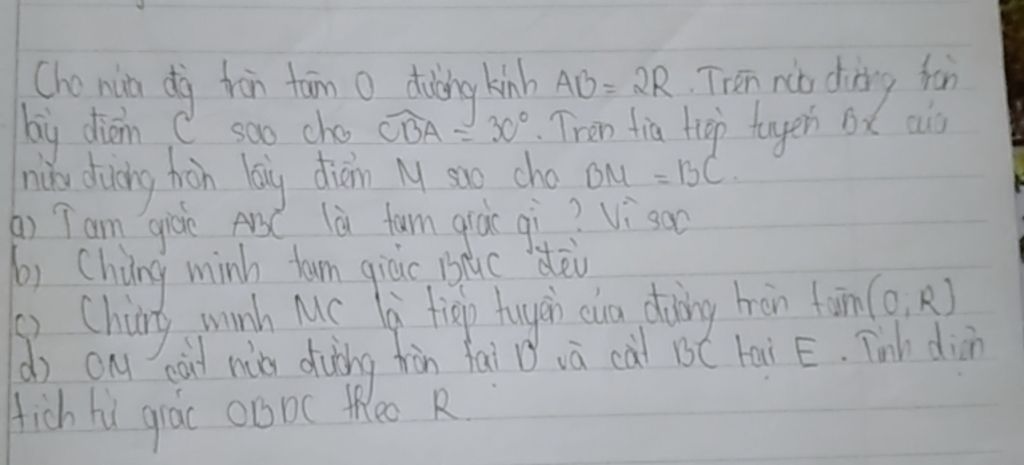 Cho nửa đg tròn tâm O đường kính AB = 2R. Trên nửa đường tròn
lấy điểm C sao cho CBA = 30°. Trên tia tiếp tuyến Bx của
nửa đường tròn lấy điểm M sao cho BM = BC.
a) Tam giác ABC là tam giác gì? Vì sao
b) Chứng minh tam giác BMC đều
c) Chứng minh MC là tiếp tuyến của đường tròn tâm (O; R)
d) OM cắt nửa đường tròn tại D và cắt BC tại E. Tính diện
tích tứ giác OBDC theo R.